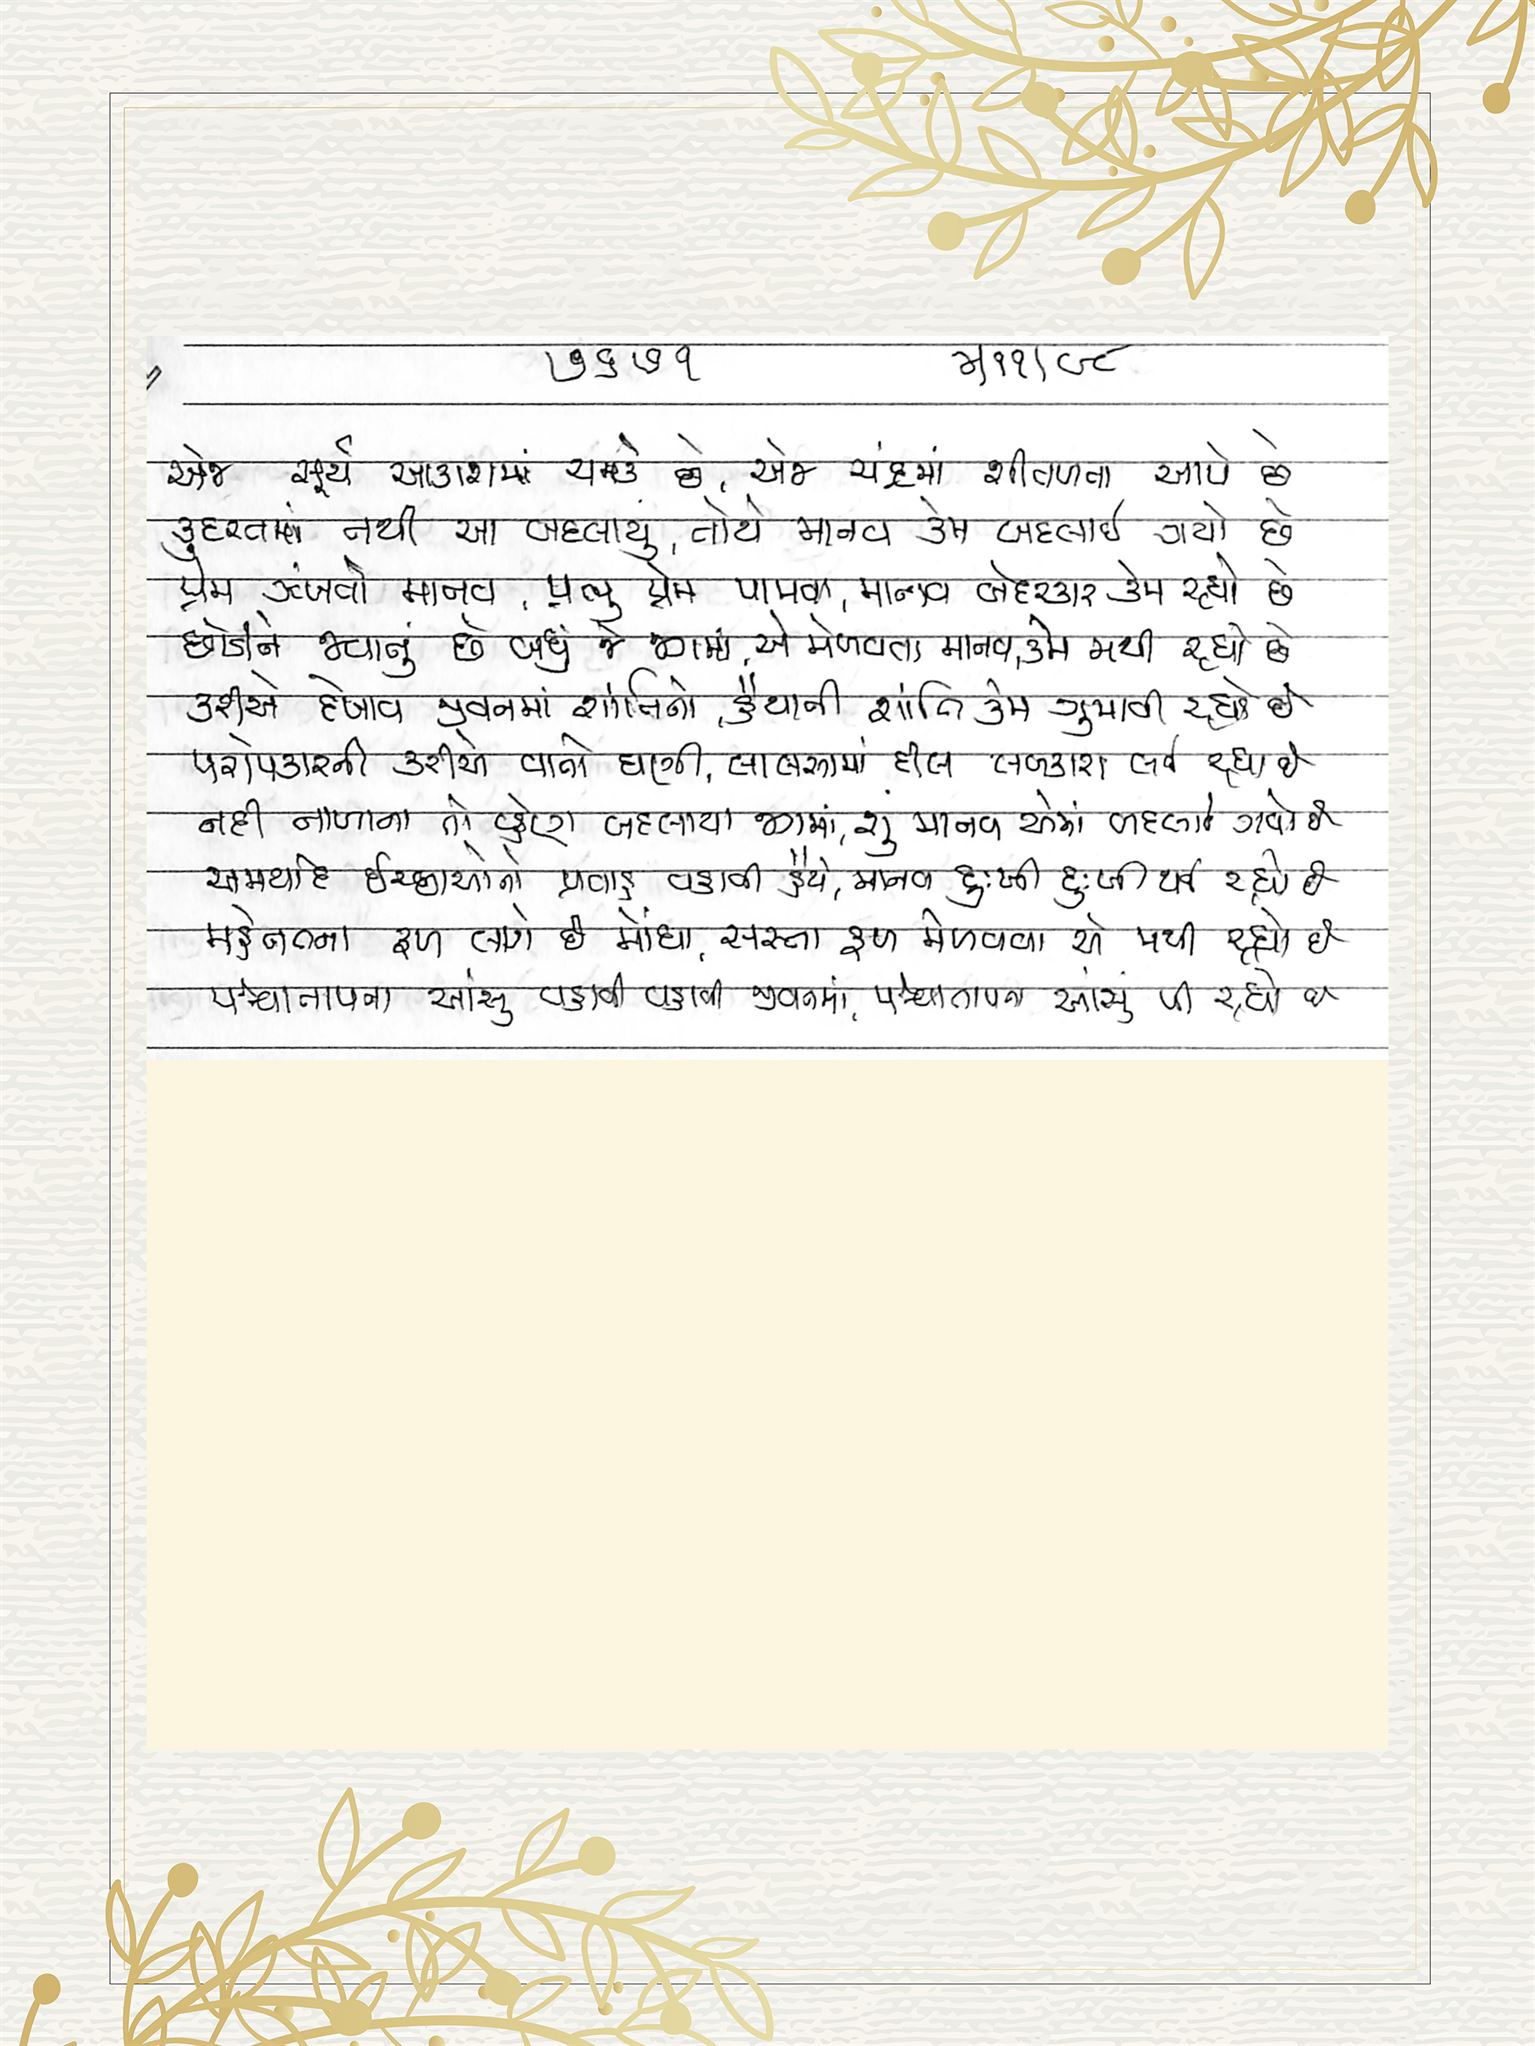 ૭૬૭૧
એજ સૂર્ય આકાશમાં ચમકે છે, એજ ચંદ્રમાં શીતળતા આપે છે
કુદરતમાં નથી આ બદલાયું, તોયે માનવ કેમ બદલાઈ ગયો છે
પ્રેમ ઝંખતો માનવ, પ્રભુ પ્રેમ પામવા, માનવ બેદરકાર કેમ રહ્યો છે
છોડીને જવાનું છે બધું જે જગમાં, એ મેળવતા માનવ, કેમ મથી રહ્યો છે
કરીએ દેખાવ જીવનમાં શાંતિનો, હૈંયાની શાંતિ કેમ ગુમાવી રહ્યો છે
પરોપકારની કરીએ વાતો ઘણી, લાલસામાં દીલ લપકારા લઈ રહ્યા છે
નહી નાણાના તો કોણ બદલાયા જગમાં, શું માનવ એમાં બદલાઈ ગયો છે
અમર્યાદિ ઈચ્છાઓનો પ્રવાહ વહાવી હૈંયે, માનવ દુઃખી દુઃખી થઈ રહ્યો છે
મહેનતના ફળ લાગે છે મોંઘા, સસ્તા ફળ મેળવવા એ મથી રહ્યો છે
પશ્ચાતાપના આંસુ વહાવી વહાવી જીવનમાં, પશ્ચાતાપના આંસું પી રહ્યો છે